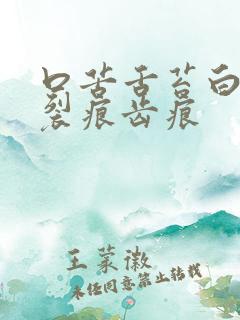 口苦舌苔白
裂痕齿痕
王菉徽
未经同意禁止转载